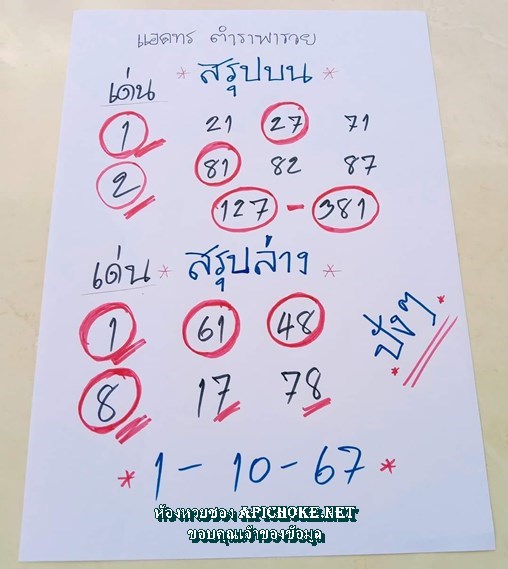 แอดทร ตำราพารวย
* สรุปบน *
เด่น
1 21 27 71
2 81 82 87
127 - 381
เด่น * สรุปล่าง *
1 61 48
8 17 78
* ปังๆ *
* 1 - 10 - 67 *
ห้องหวยซอง APICHOKE.NET
ขอบคุณเจ้าของข้อมูล